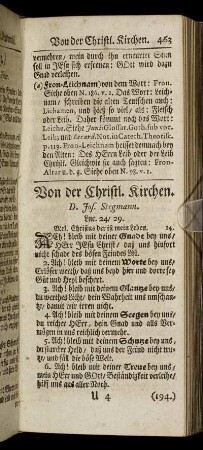 Von der Christl. Kirchen. 463
vermehren, mein durch ihn erneurter Stan
fol in JEsu sich erfreuen: GOtt wird dazu
Gnad verleihen.
(a) Fron-Leichnam) von dem Wort: Fron.
Siehe oben N. 186. v. 1. Das Wort: Leich-
nam / schreiben die alten Teutschen auch:
Lichamen, und heist so viel / als: Fleisch
oder Leib. Daher kommt noch das Wort:
Leiche. Siehe Junii Glossar. Goth. sub voc.
Leik; und Not. in Catech. Theotisc.
p. 119. Fron-Leichnam heisset demnach bey
den Alten: Des HErrn Leib oder der Leib
Christi. Gleichwie sie auch sagten: Fron-
Altar u. d. g. Siehe oben N. 98. v. 1.
Von der Christl. Kirchen.
D. Jos. Stegmann.
Luc. 24/ 29.
Mel. Christus der ist mein Leben. 14.
Ach! bleib mit deiner Gnade bey uns/
HErr JEsu Christ/ daß uns hinfort
nicht schade des bösen Feindes List.
2. Ach! bleib mit deinem Worte bey uns/
Erlöser werth/ daß uns beyd hier und dorte sey
Güt und Heyl beschert.
3. Ach! bleib mit deinem Glantze bey uns/
du werthes Licht/ dein Wahrheit uns umschan-
tze/ damit wir irren nicht.
4. Ach! bleib mit deinem Seegen bey uns/
du reicher HErr, dein Gnad und alls Ver-
mögen in uns reichlich vermehr.
5. Ach! bleib mit deinem Schutze bey uns/
du starcker Held / daß uns der Feind nicht tru-
tze / noch fäll die böse Welt.
6. Ach! bleib mit deiner Treue bey uns/
mein HErr und GOtt/ Beständigkeit verleihe/
hilff uns aus aller Noth.
U 4 (194.)